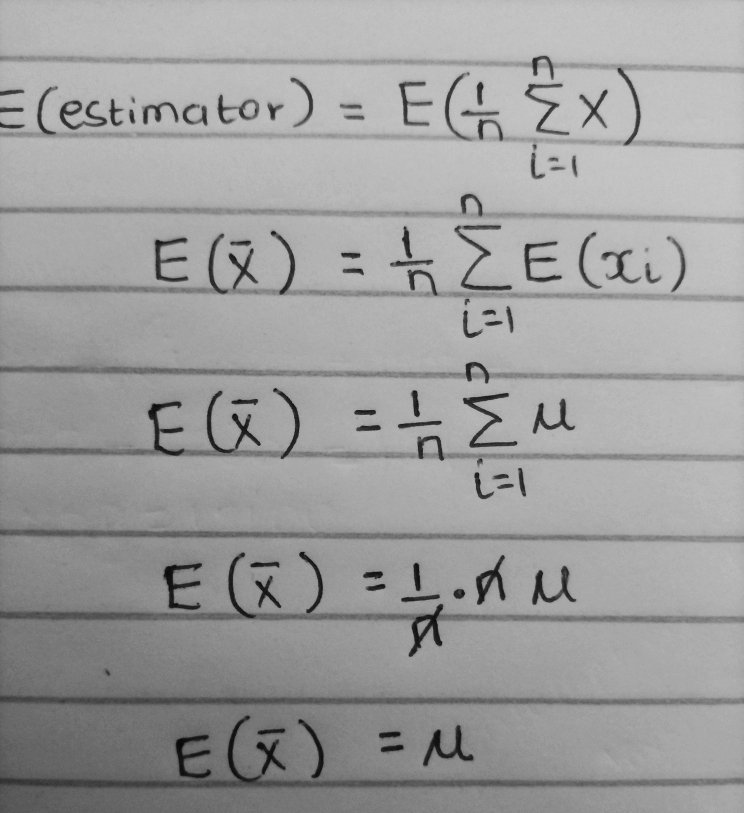 E(estimator) = E(1/n ∑_{i=1}^{n} X)
E(x̄) = 1/n ∑_{i=1}^{n} E(xi)
E(x̄) = 1/n ∑_{i=1}^{n} μ
E(x̄) = 1/n̸ . n̸ μ
E(x̄) = μ